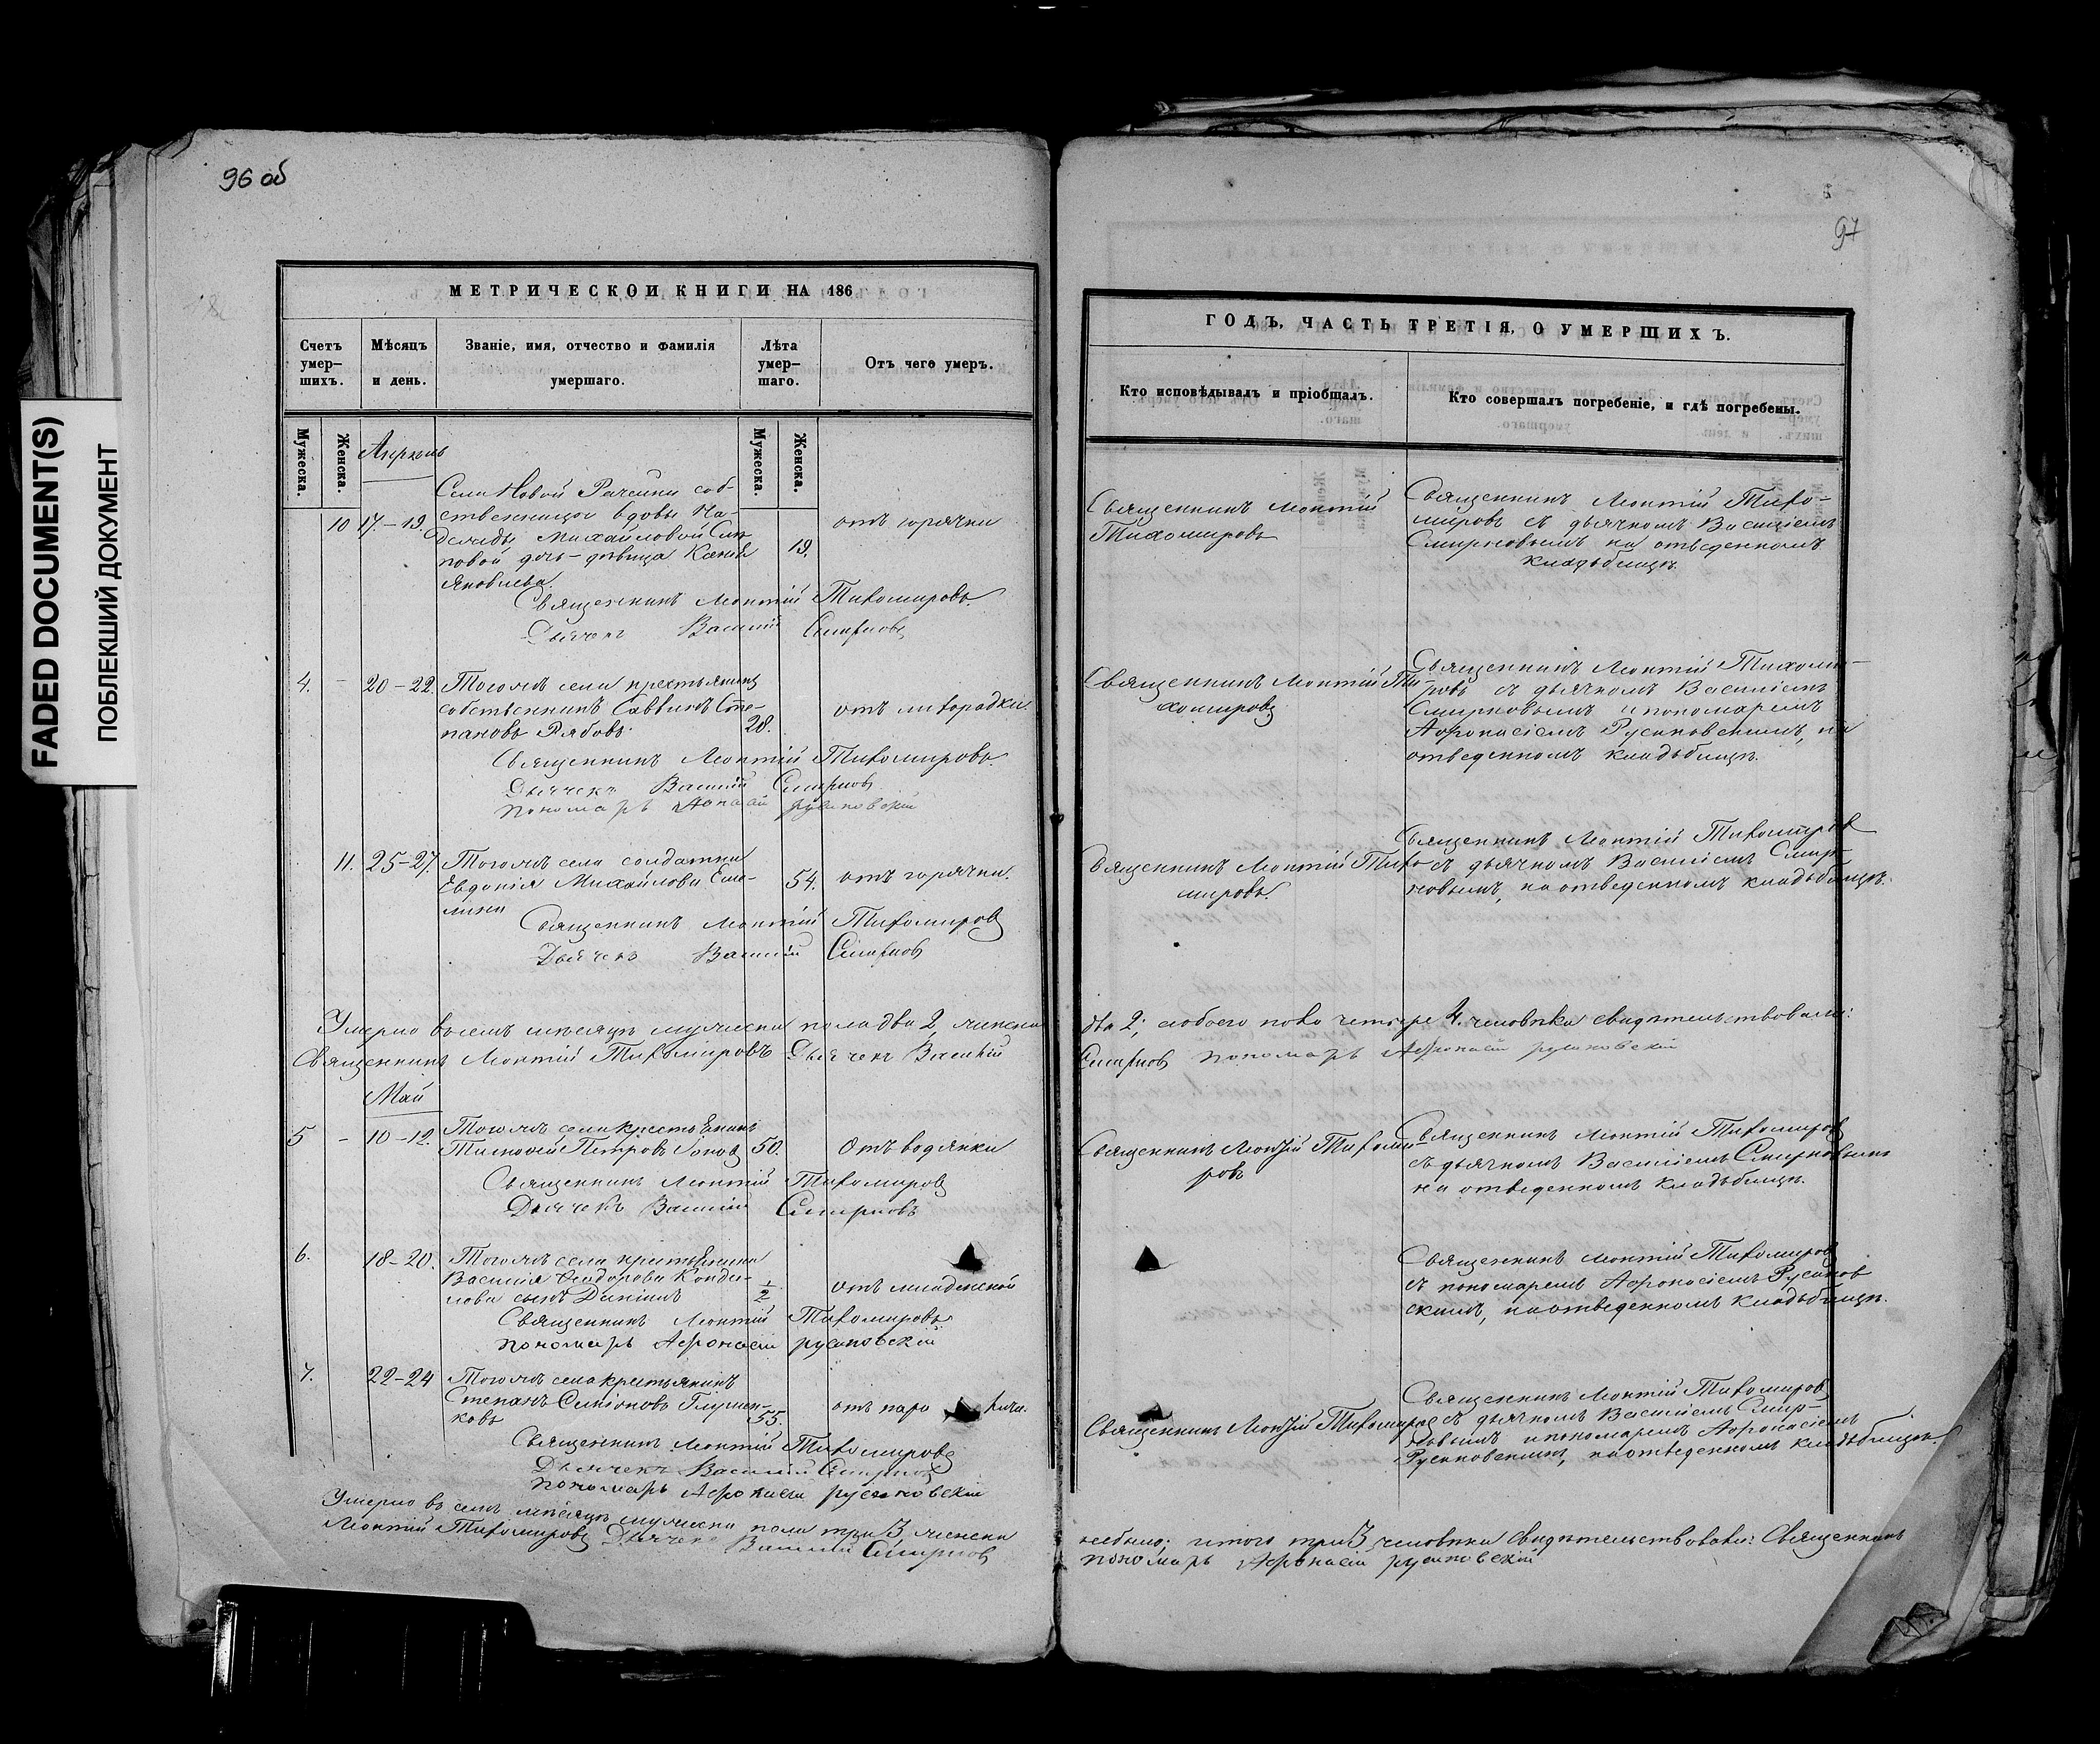 FADED DOCUMENT(S)
ПОБЛЕКШИЙ ДОКУМЕНТ
96 об
МЕТРИЧЕСКОИ КНИГИ НА 186
Счетъ умер-шихъ.
Мѣсяцъ и день.
Званіе, имя, отчество и фамилія умершаго.
Лѣта умер-шаго.
Отъ чего умеръ.
Мужеска.
Женска.
Мужеска.
Женска.
Апрель
10 17.-19.
Села Новой Рачейки соб-
ственницы вдовы На-
дежды Михайловой
повой дочь-девица
Яковлева.
19.
отъ горячки
Священникъ Леонтій Тихомировъ.
Дьячекъ Василій Смирновъ
4. - 20-22.
Тогожъ села крестьянинъ
собственникъ Саввинъ Сте-
пановъ Рябовъ.
28.
отъ лихорадки.
Священникъ Леонтій Тихомировъ.
Дьячекъ Василій Смирновъ
Пономарь Афонасій Русановскій
11. 25-27.
Тогожъ села солдатка
Евдокія Михайлова Еме-
лина
54.
отъ горячки.
Священникъ Леонтій Тихомировъ
Дьячекъ Василій Смирновъ
Умерло въ семъ мѣсяцѣ мужеска пола два 2, женска
Священникъ Леонтій Тихомировъ Дьячекъ Василій
Май
5 - 10-12.
Тогожъ села крестьянинъ
Тимофей Петровъ
50.
Отъ водянки
Священникъ Леонтій Тихомировъ
Дьячекъ Василій Смирновъ
6. 18-20.
Тогожъ села крестьянина
Василія Феодорова Конди-
лова сынъ Даніилъ
1/2
отъ младенской
Священникъ Леонтій Тихомировъ
пономарь Афонасій русановскій
7. 22-24
Тогожъ села крестьянинъ
Степанъ Симіоновъ Глушен-
ковъ
55.
отъ горя чки.
Священникъ Леонтій Тихомировъ
Дьячекъ Василій Смирновъ
пономарь Афонасій русановскій
Умерло въ семъ мѣсяцѣ мужеска пола три 3, женска
Леонтій Тихомировъ Дьячекъ Василій Смирновъ
97
ГОДЪ, ЧАСТЬ ТРЕТІЯ, О УМЕРШИХЪ.
Кто исповѣдывалъ и пріобщалъ.
Кто совершалъ погребеніе, и гдѣ погребены.
Священникъ Леонтій
Тихомировъ
Священникъ Леонтій Тихо-
мировъ съ дьячкомъ Василіемъ
Смирновымъ на отведенномъ
кладьбищѣ.
Священникъ Леонтій Ти-
хомировъ
Священникъ Леонтій Тихоми-
ровъ съ дьячкомъ Василіемъ
Смирновымъ и пономаремъ
Афонасіемъ Русановскимъ, на
отведенномъ кладьбищѣ.
Священникъ Леонтій Тихо-
мировъ.
Священникъ Леонтій Тихомиров
съ дьячкомъ Василіемъ Смир-
новымъ, на отведенномъ кладьбищѣ.
два 2; а обоего пола четыре 4. человѣка свидѣтельствовали:
Смирновъ пономарь Афонасій русановскій
Священникъ Леонтій Тихоми-
ровъ
Священникъ Леонтій Тихомиров
съ дьячкомъ Василіемъ Смирновымъ
на отведенномъ кладьбищѣ.
Священникъ Леонтій Тихомиров
съ пономаремъ Афонасіемъ Русанов
скимъ, на отведенномъ кладьбищѣ.
Священникъ Леонтій Тихомиров
Священникъ Леонтій Тихомиров
съ дьячкомъ Василіемъ Смир-
новымъ и пономаремъ Афонасіемъ
Русановскимъ, на отведенномъ кладьбищѣ.
небыло; итого три 3, человѣка Свидѣтельствовали: Священникъ
пономарь Афонасій русановскій